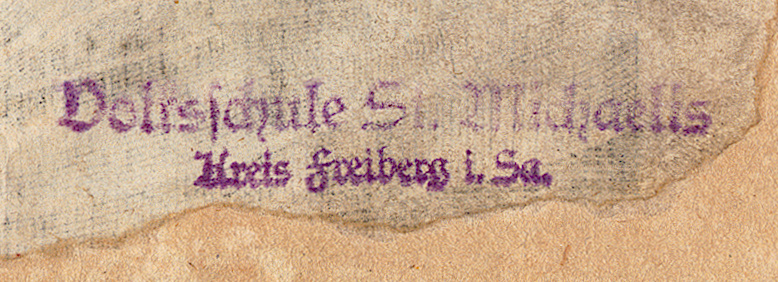 Volksschule St. Michaelis
Kreis Freiberg i. Sa.